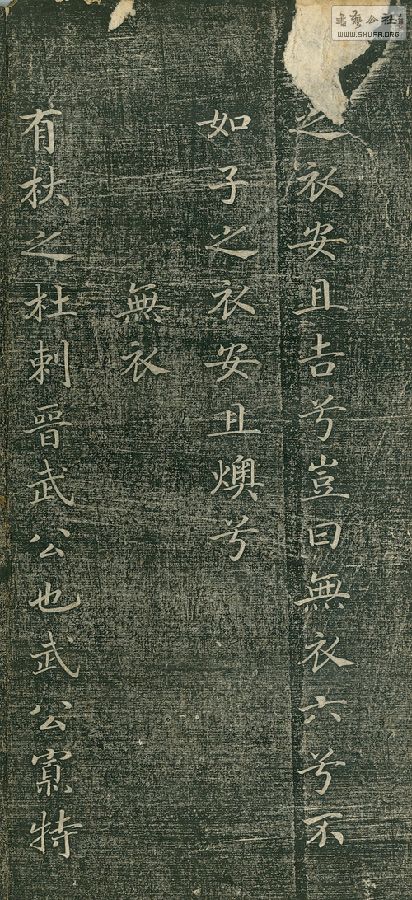 之衣安且吉兮豈曰無衣六兮不
如子之衣安且燠兮
無衣
有杕之杜刺晉武公也武公寡特
WWW.SHUFA.ORG